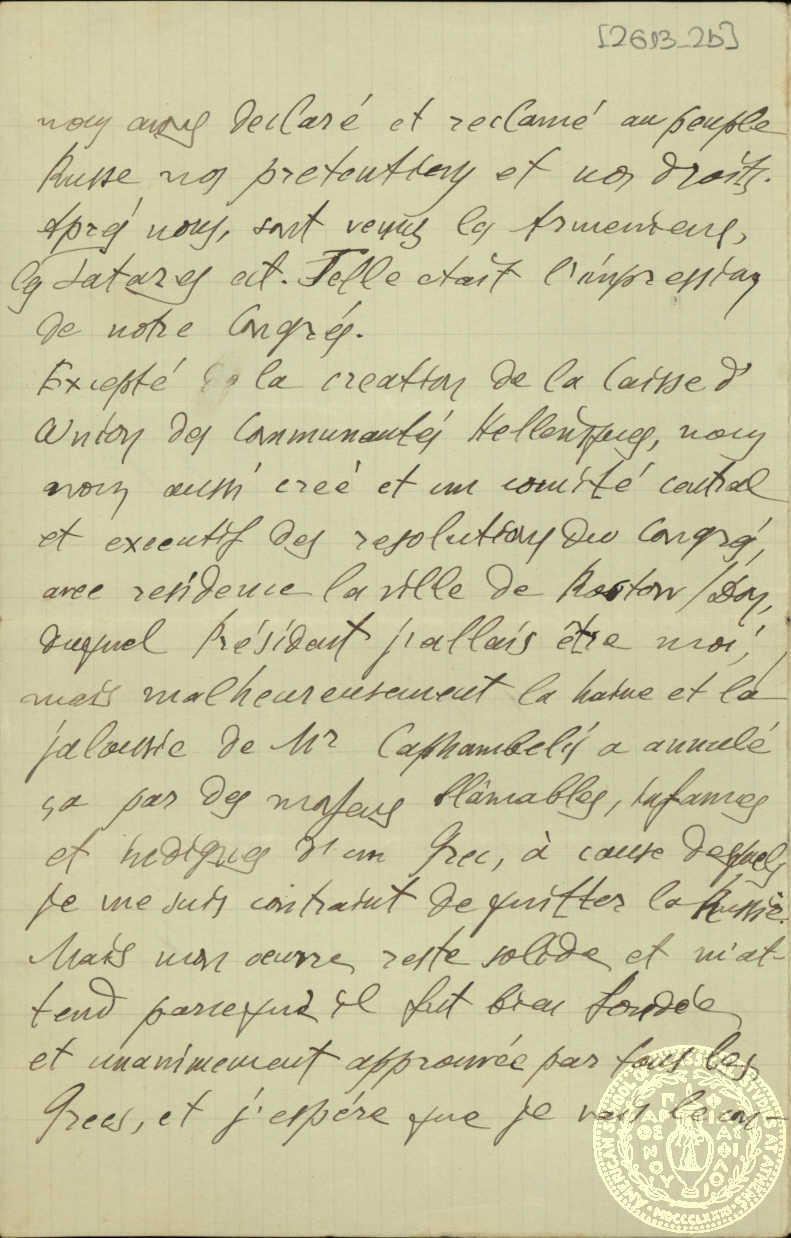 [2613_2b]
nous avons declaré et reclamé au peuple
Russe nos pretentions et nos droits.
Après nous, sont venus les Armeniens,
les Tatares ect. Telle etait l'impression
de notre Congrès.
Excepté la creation de la Caisse d'
Union des Communautés Helleniques, nous
avons aussi creé et un comité central
et executif des resolutions du Congrès,
avec residence la ville de Rostow/Don,
duquel Président j'allais être moi,
mais malheureusement la haine et la
jalousie de Mr Caphambelis a annulé
ça par des moyens blâmables, infames
et indignes d'un Grec, à cause desquels
je me suis contraint de quitter la Russie.
Mais mon oeuvre reste solide et m'at-
tend parceque il fut bien fondée
et unanimement approuvée par tous les
Grecs, et j'espére que je vais le con-
AMERICAN SCHOOL OF CLASSICAL STUDIES AT ATHENS
MDCCCLXXXI
ΠΑΡ
ΘΕ
ΝΟΥ
ΦΙ